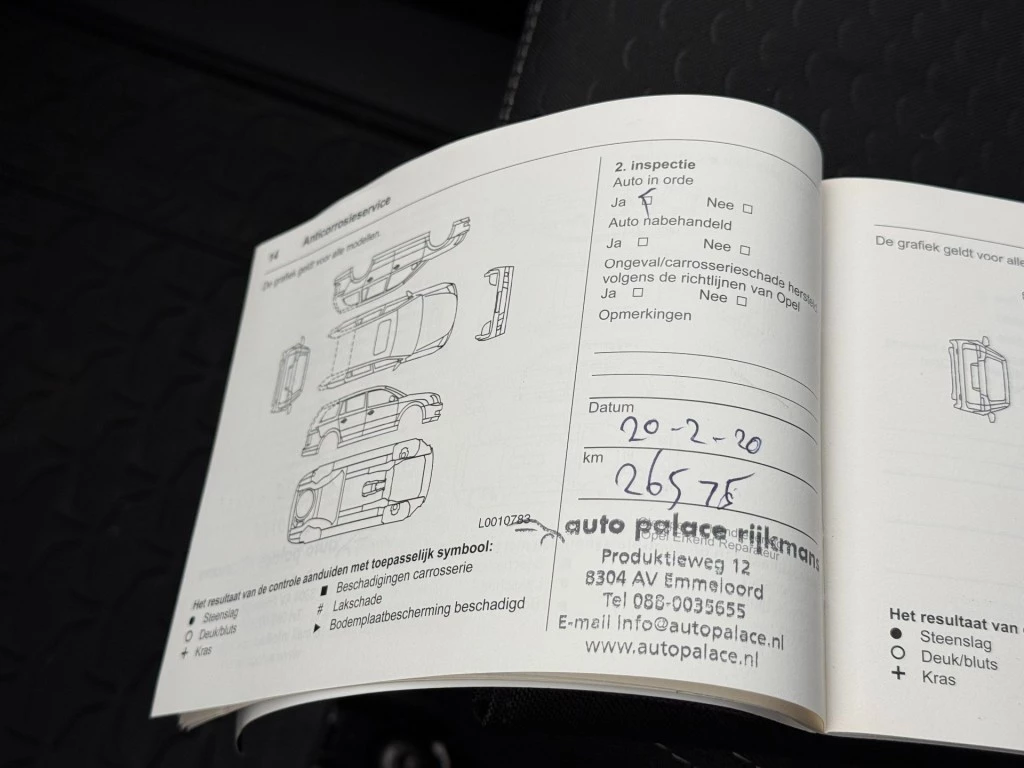 14 Anticorrosieservice
De grafiek geldt voor alle modellen.
L0010783
Het resultaat van de controle aanduiden met toepasselijk symbool:
● Steenslag
○ Deuk/bluts
+ Kras
■ Beschadigingen carrosserie
# Lakschade
▶ Bodemplaatbescherming beschadigd
2. inspectie
Auto in orde
Ja □ Nee □
Auto nabehandeld
Ja □ Nee □
Ongeval/carrosserieschade hersteld
volgens de richtlijnen van Opel
Ja □ Nee □
Opmerkingen
Datum
20-2-20
km
26575
auto palace rijkmans
Opel Erkend Reparateur
Produktieweg 12
8304 AV Emmeloord
Tel 088-0035655
E-mail info@autopalace.nl
www.autopalace.nl
De grafiek geldt voor alle
Het resultaat van
● Steenslag
○ Deuk/bluts
+ Kras